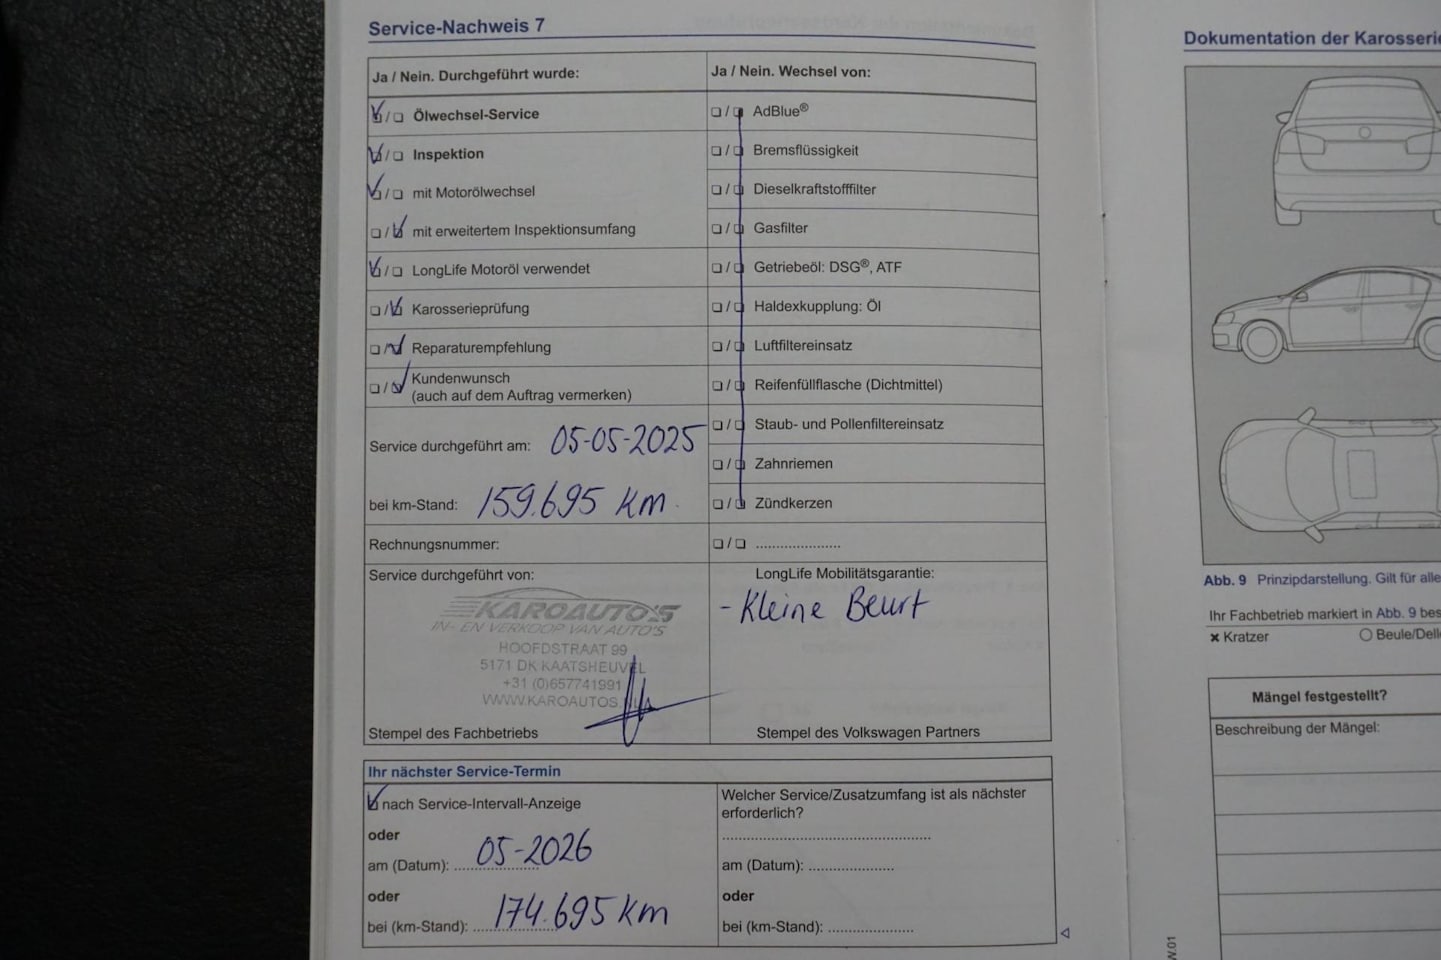 Service-Nachweis 7
Ja / Nein. Durchgeführt wurde:
Ölwechsel-Service
Inspektion
mit Motorölwechsel
mit erweitertem Inspektionsumfang
LongLife Motoröl verwendet
Karosserieprüfung
Reparaturempfehlung
Kundenwunsch
(auch auf dem Auftrag vermerken)
Service durchgeführt am: 05-05-2025
bei km-Stand: 159.695 km
Rechnungsnummer:
Service durchgeführt von:
KAROAUTO'S
IN- EN VERKOOP VAN AUTO'S
HOOFDSTRAAT 99
5171 DK KAATSHEUVEL
+31 (0)657741991
WWW.KAROAUTOS.NL
Stempel des Fachbetriebs
Ja / Nein. Wechsel von:
AdBlue®
Bremsflüssigkeit
Dieselkraftstofffilter
Gasfilter
Getriebeöl: DSG®, ATF
Haldexkupplung: Öl
Luftfiltereinsatz
Reifenfüllflasche (Dichtmittel)
Staub- und Pollenfiltereinsatz
Zahnriemen
Zündkerzen
LongLife Mobilitätsgarantie:
- Kleine Beurt
Stempel des Volkswagen Partners
Ihr nächster Service-Termin
nach Service-Intervall-Anzeige
oder
am (Datum): 05-2026
oder
bei (km-Stand): 174.695 km
Welcher Service/Zusatzumfang ist als nächster
erforderlich?
am (Datum):
oder
bei (km-Stand):
Dokumentation der Karosserie
Abb. 9 Prinzipdarstellung. Gilt für alle
Ihr Fachbetrieb markiert in Abb. 9 bes
× Kratzer
Beule/Delle
Mängel festgestellt?
Beschreibung der Mängel: